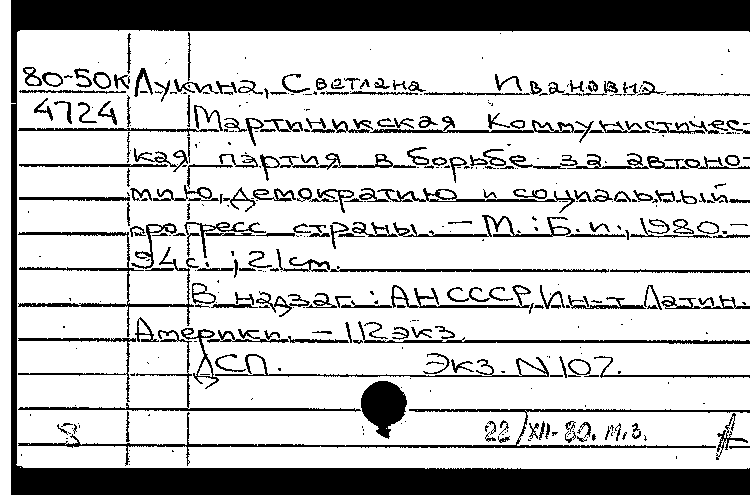 80-50к Лукина, Светлана Ивановна
4724 Мартиникская Коммунистичес-
кая партия в борьбе за автоно-
мию, демократию и социальный
прогресс страны. - М. : Б. и., 1980. -
94 с. ; 21 cm.
В надзаг. : АН СССР, Ин-т Латин.
Америки. - 112 экз.
ДСП. Экз. N 107.
8 22/XII-80. М.З.